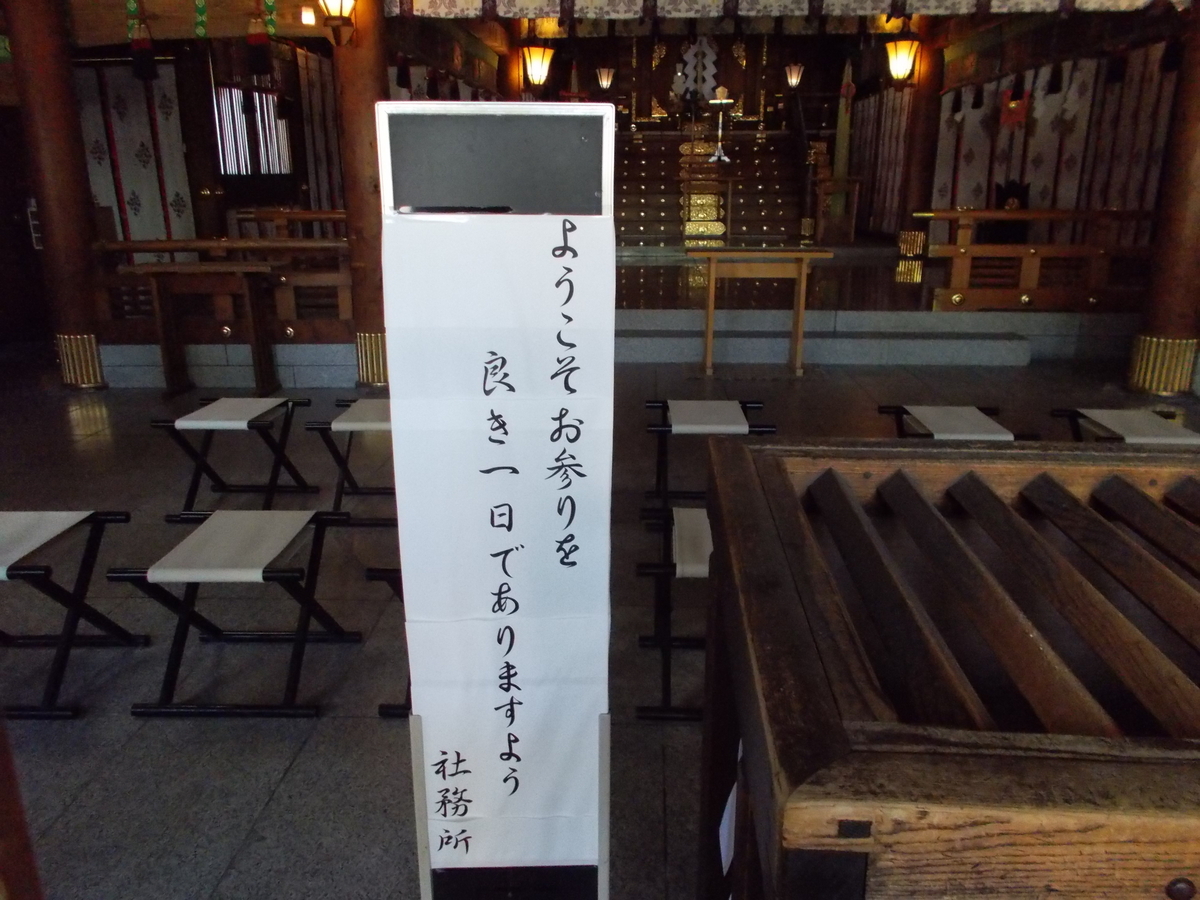 ようこそお参りを
良き一日でありますよう
社務所